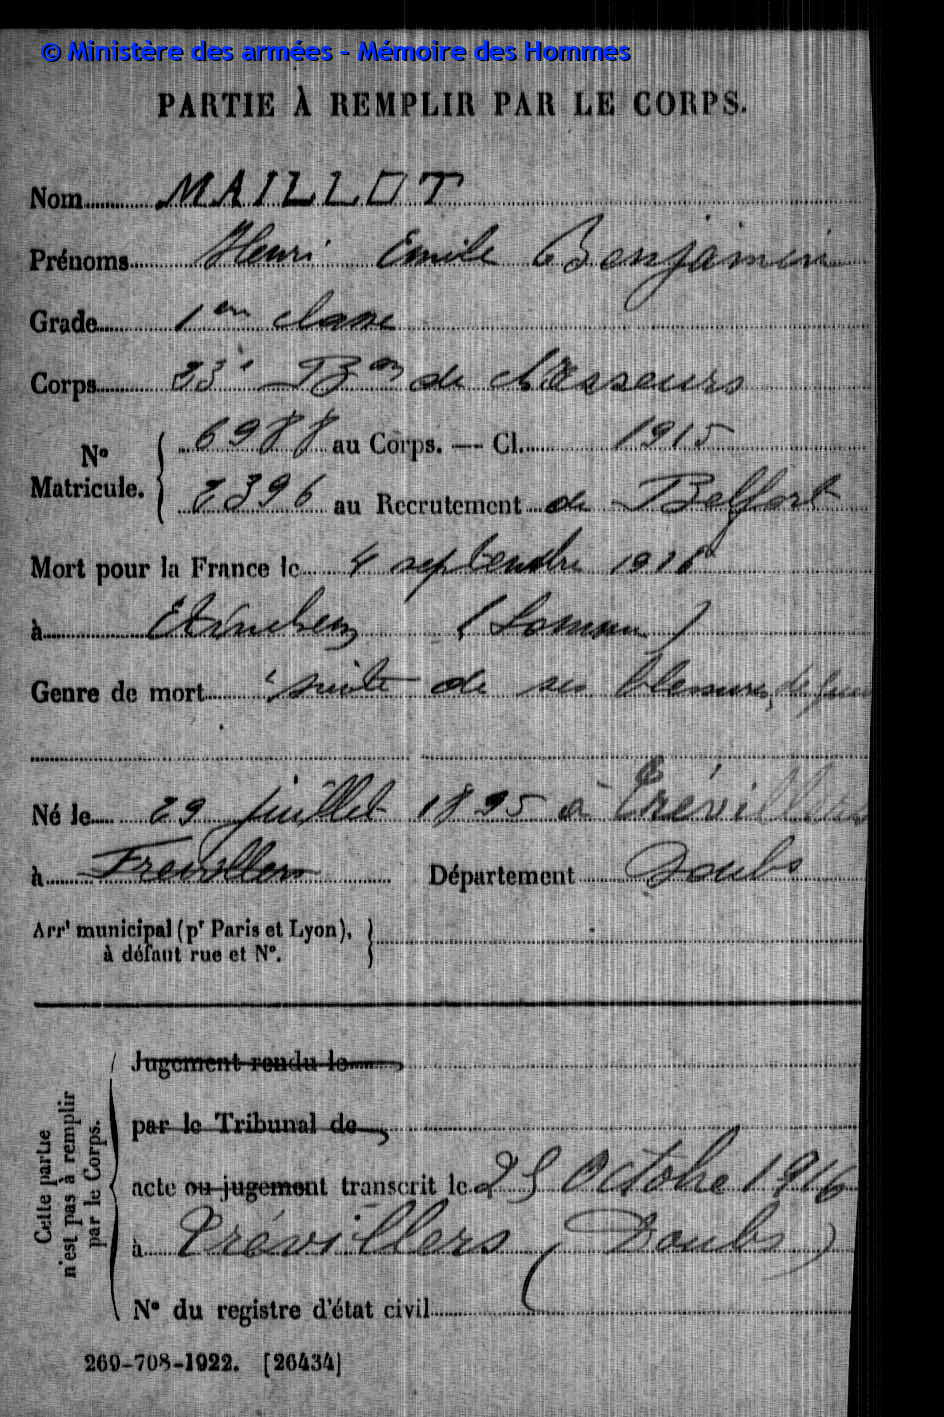 © Ministère des armées - Mémoire des Hommes
PARTIE À REMPLIR PAR LE CORPS.
Nom MAILLOT
Prénoms Henri Emile Benjamin
Grade 1ere classe
Corps 23e Bon de Chasseurs
No Matricule. 6988 au Corps. — Cl. 1915
2396 au Recrutement de Belfort
Mort pour la France le 4 septembre 1916
à Etinehem (Somme)
Genre de mort suite de ses blessures de guerre
Né le 29 juillet 1895 à Trévillers
à Frevillers Département Doubs
Arrt municipal (pr Paris et Lyon),
à défaut rue et N°.
Cette partie
n'est pas à remplir
par le Corps.
Jugement rendu le
par le Tribunal de
acte ou jugement transcrit le 25 Octobre 1916
à Trévillers (Doubs)
N° du registre d'état civil
269-708-1922. [26434]